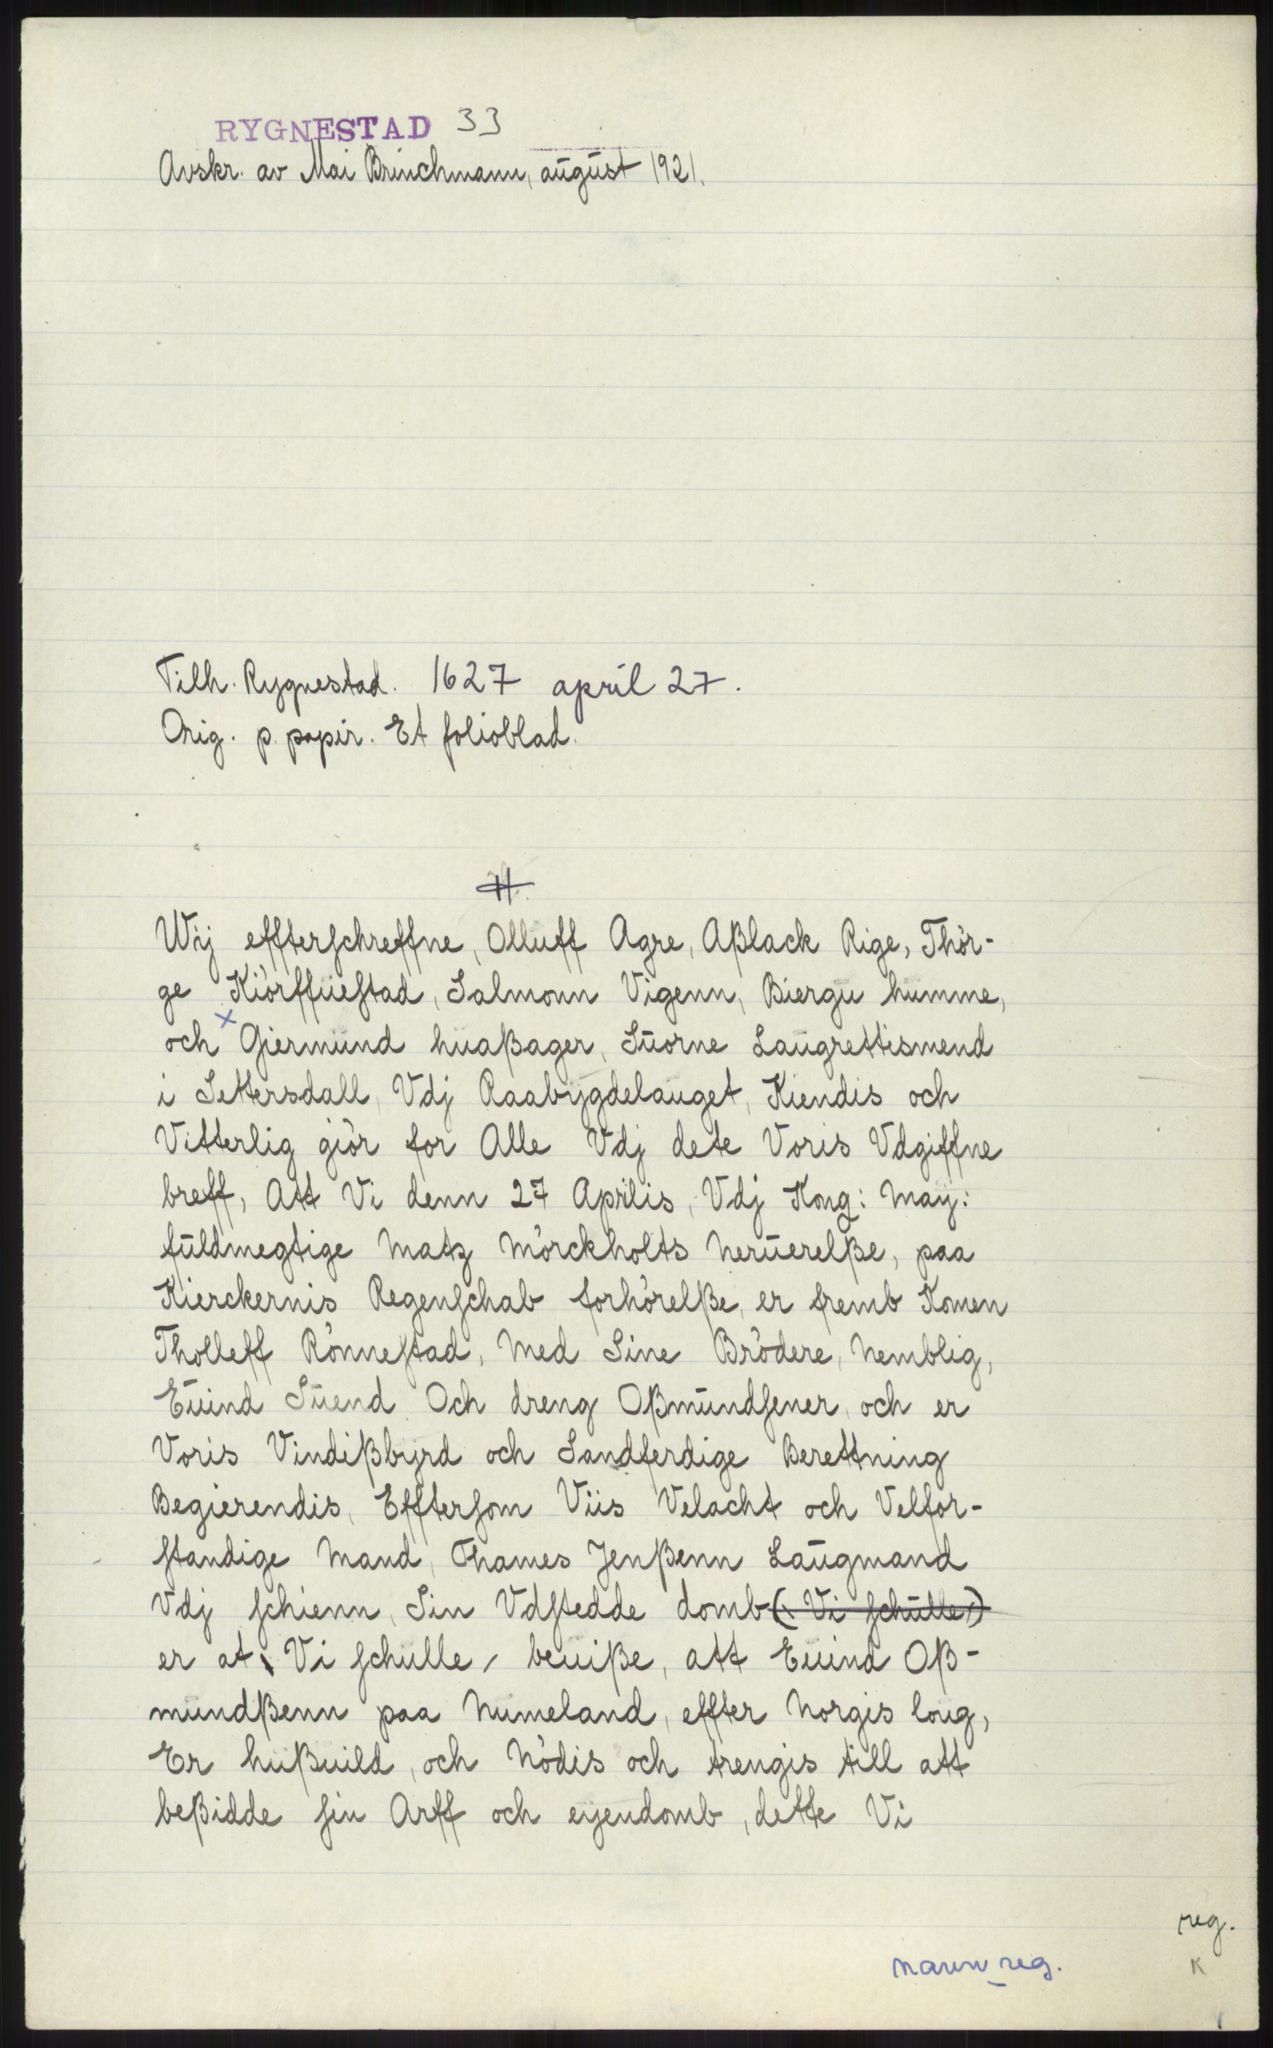 RYGNESTAD 33
Avskr. av Mai Brinchmann, august 1921.
Tilh. Rygnestad. 1627 april 27.
Orig. p. papir. Et folioblad.
H.
Wij effterschreffne, Olluff Agre, Aßlack Rige, Thör-
ge Kiörffuestad, Salmonn Vigenn, Biergu humme,
och x Giermund huaßager, Suorne Laugrettismend
i Settersdall, Vdj Raabygdelauget, Kiendis och
Vitterlig giör for Alle Vdj dete Voris Vdgiffne
breff, Att Vi denn 27 Aprilis, Vdj Kong: May:
fuldmegtige Matz Mörckholts Neruerelße, paa
Kierckernis Regenschab forhörelße, er fremb Komen
Tholleff Rönnestad, Med Sine Brödere, Nemblig,
Euind Suend Och dreng Oßmundsener, och er
Voris Vindißbyrd och Sandferdige Berettning
Begierendis, Efftersom Viis Velacht och Velfor-
standige Mand, Thames Jenßenn Laugmand
Vdj schienn, Sin Vdstedde domb (: Vi schulle :)
er at, Vi schulle, beuiße, att Euind Oß-
mundßenn paa Numeland, effter Norgis loug,
Er hußuild, och Nödis och trengis till att
beßidde sin Arff och eyendomb, dette Vi
reg.
navn_reg.
K